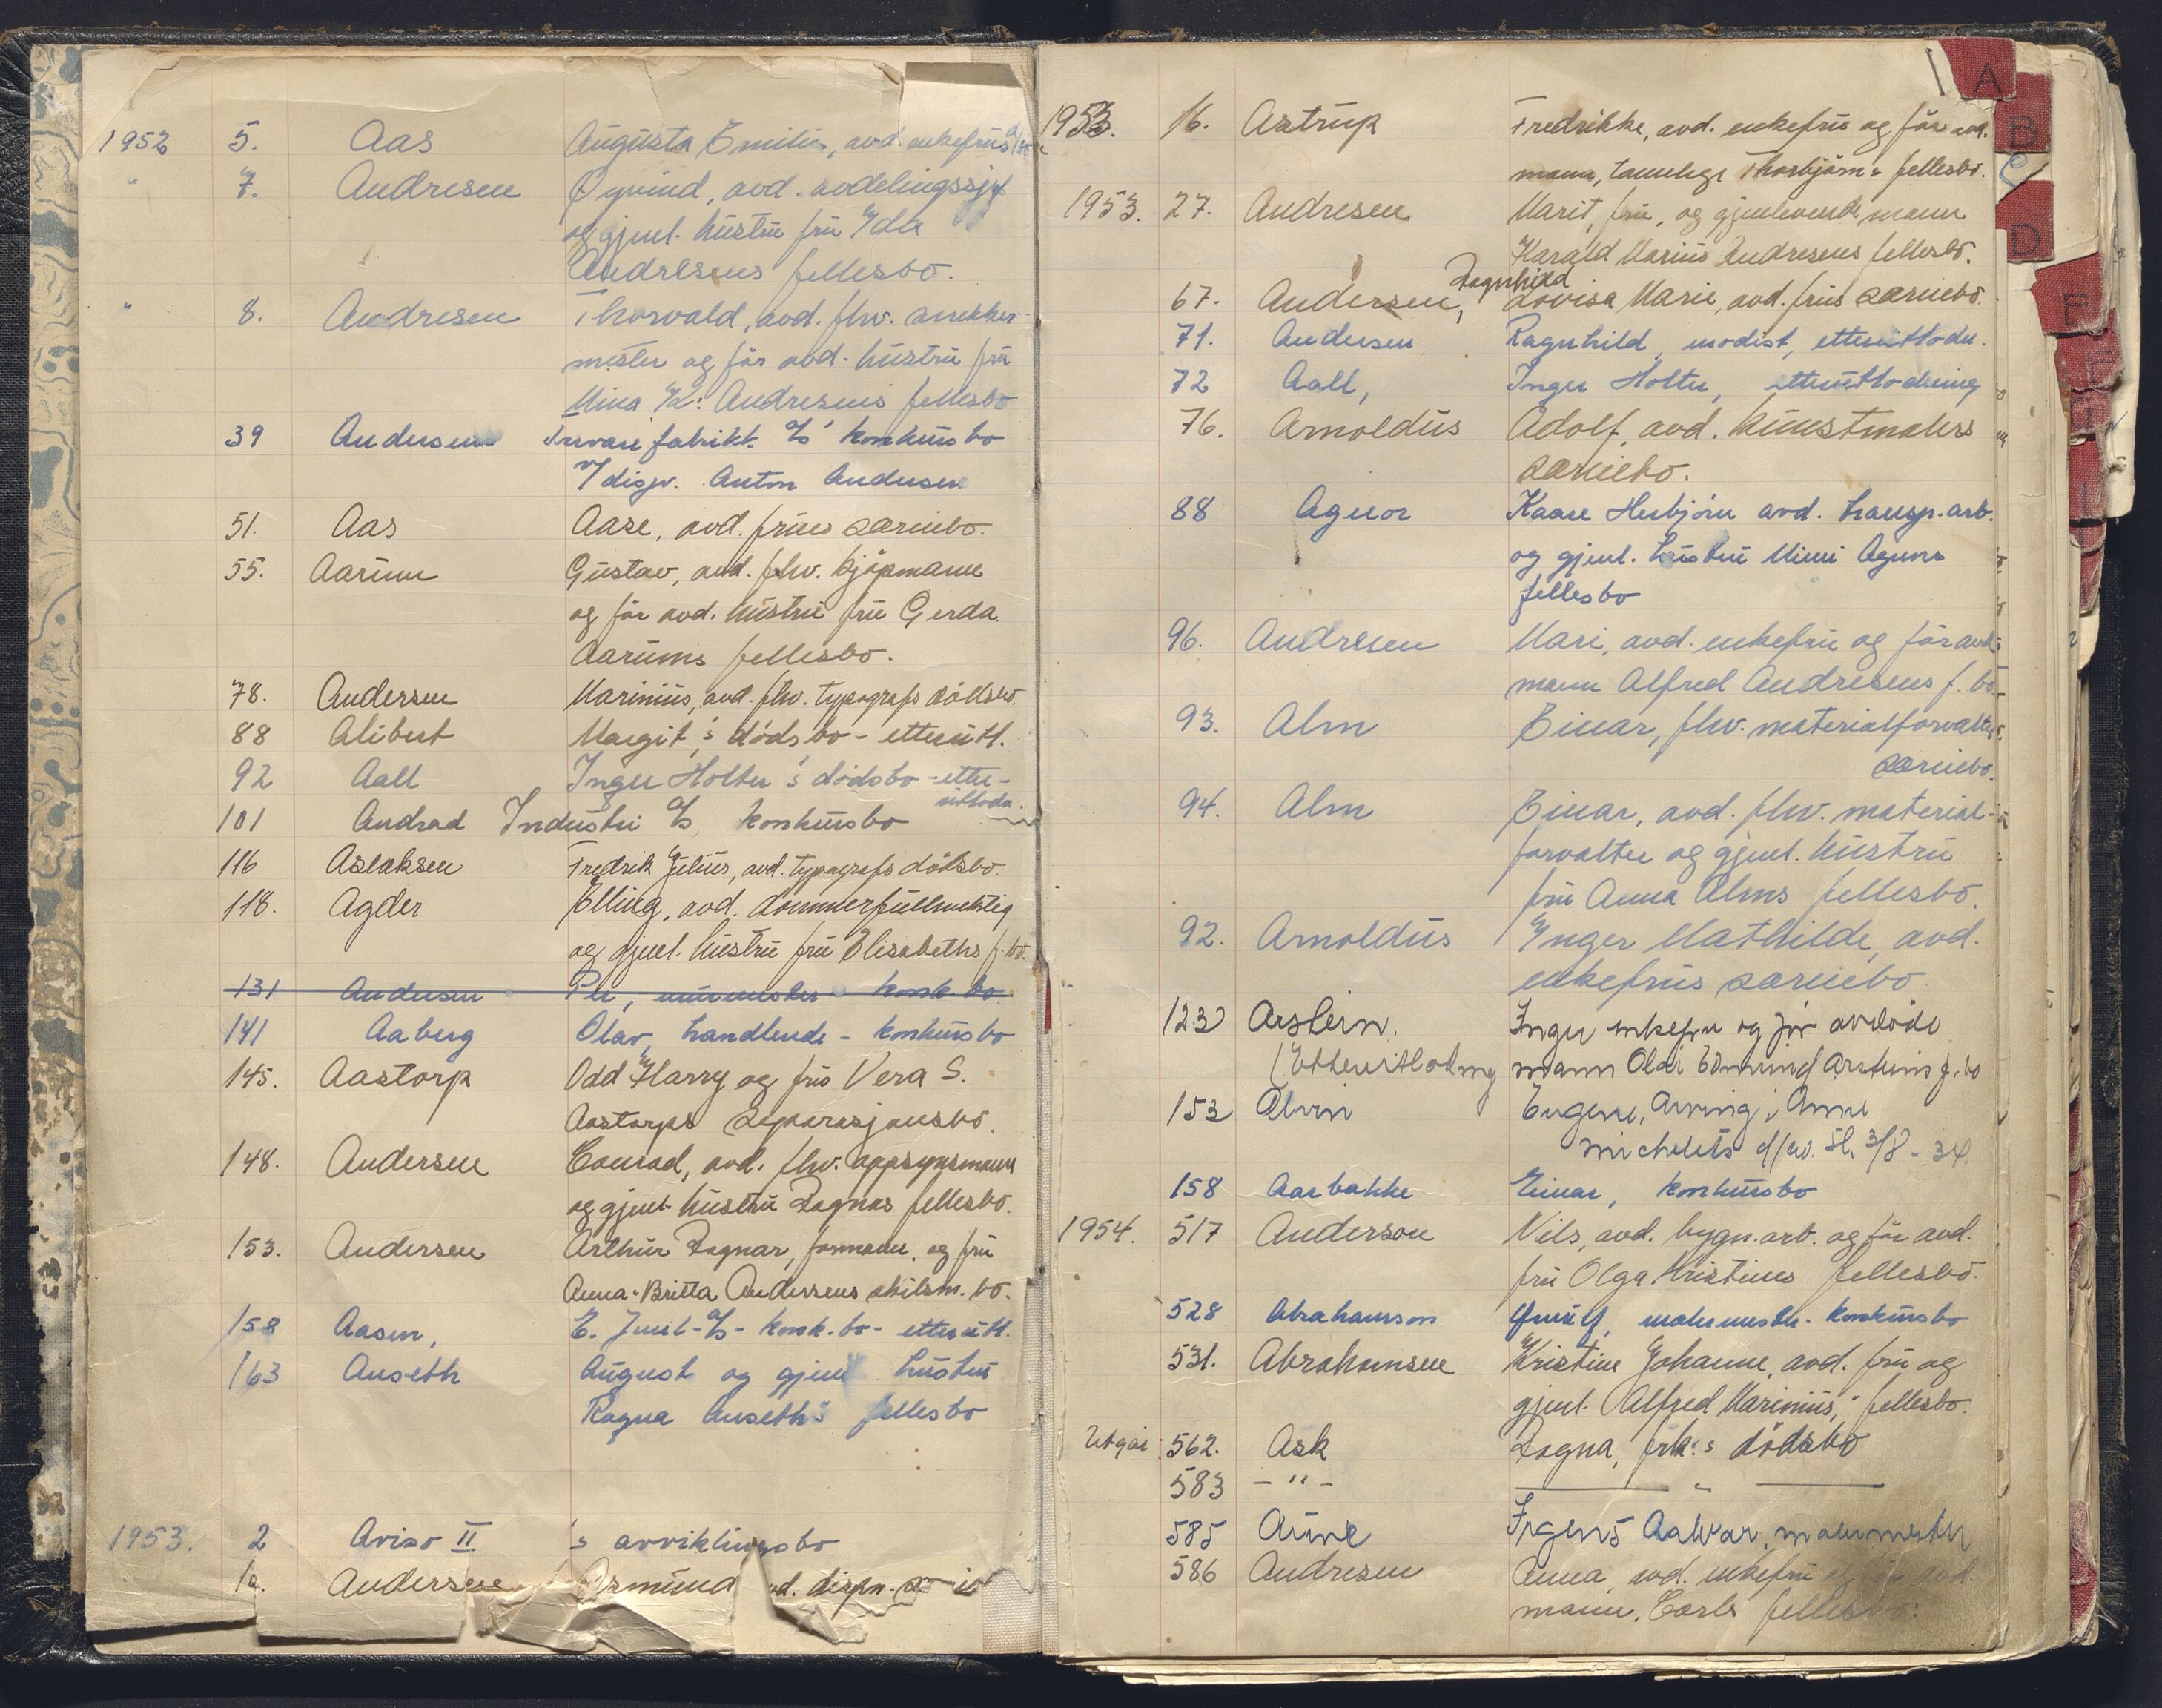 1952 5. Aas Augusta Emilie, avd. enkefrus
" 7. Andresen Øyvind, avd. avdelingssjef
og gjenl. hustru fru Ida
Andresens fellesbo.
" 8. Andresen Thorvald, avd. fhv. snekker-
mester og før avd. hustru fru
Mina Andresens fellesbo
39 Andersen Trevarefabrikk A/S' konkursbo
v/disp. Anton Andersen
51. Aas Aase, avd. frues særeiebo.
55. Aarum Gustav, avd. fhv. kjøpmann
og før avd. hustru fru Gerda
Aarums fellesbo.
78. Andersen Marinius, avd. fhv. typografs dødsbo
88 Alibert Margit's dødsbo - etterutl.
92 Aall Inger Holter's dødsbo - etter-
utlodn.
101 Andrad Industri A/S, konkursbo
116 Aslaksen Fredrik Julius, avd. typografs dødsbo.
118. Agder Elling, avd. dommerfullmektig
og gjenl. hustru fru Elisabeths f.bo.
131 Andersen Per, murmester konk.bo
141 Aaberg Olav, handlende - konkursbo
145. Aastorp Odd Harry og fru Vera S.
Aastorps separasjonsbo.
148. Andersen Conrad, avd. fhv. oppsynsmann
og gjenl. hustru Dagnas fellesbo.
153. Andersen Arthur Ragnar, formann, og fru
Anna-Britta Andersens skilsm.bo.
158 Aasen, E. Juul - A/S - konk.bo - etterutl.
163 Anseth August og gjenl hustru
Ragna Anseth's fellesbo
1953. 2 Aviso II 's avviklingsbo
1a. Andersen Asmund avd. disp.
1953. 16. Astrup Fredrikke, avd. enkefru og før avd.
mann, tannlege Thorbjørn's fellesbo.
1953. 27. Andresen Marit, fru, og gjenlevende mann
Harald Marius Andresens fellesbo.
Dagnhild
67. Andersen, Lovisa Marie, avd. frus særeiebo.
71. Andersen Ragnhild, modist, etterutlodn.
72 Aall, Inger Holter, etterutlodning
76. Arnoldus Adolf, avd. kunstmalers
særeiebo.
88 Agnor Kaare Herbjørn avd. transp.arb.
og gjenl. hustru Mimi Agnors
fellesbo
96. Andresen Mari, avd. enkefru og før avd.
mann Alfred Andresens f.bo
93. Alm Einar, fhv. materialforvalters
særeiebo.
94. Alm Einar, avd. fhv. material-
forvalter og gjenl. hustru
fru Anna Alms fellesbo.
92. Arnoldus Inger Mathilde, avd.
enkefrus særeiebo.
123 Arstein. Inger enkefru og før avdøde
(Etterutlodning mann Olai Edmund Arsteins f.bo
153 Alvin Eugene, Arving i Anne
Michelets d/bo. Sl. 3/8 - 34.
158 Aarbakke Einar, konkursbo
1954. 517 Anderson Nils, avd. bygn.arb. og før avd.
fru Olga Kristines fellesbo.
528 Abrahamsson malermester - konkursbo
531. Abrahamsen Kristine Johanne, avd. fru og
gjenl. Alfred Marinius,' fellesbo.
Utgår 562. Ask Dagna, frk.s dødsbo
583 - " - "
585 Aune Irgens Aalvar, malermester
586 Andresen Anna, avd. enkefru og før avd.
mann, Carls fellesbo.
A
B
C
D
E
F